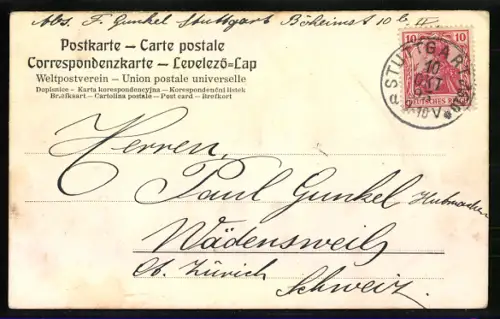 Abs. F. Gunkel Stuttgart Böheimst 10 b. IV.
Postkarte — Carte postale
Correspondenzkarte — Levelező-Lap
Weltpostverein — Union postale universelle
Dopisnice - Karta korespondencyjna - Korespondenčni listek
Brefkort
Cartolina postale — Post card —
10 10
DEUTSCHES REICH
STUTTGART
10
OKT
9-10 V
Herren,
Paul Gunkel Hutmacher
Wädensweil
Ct. Zürich
Schweiz.